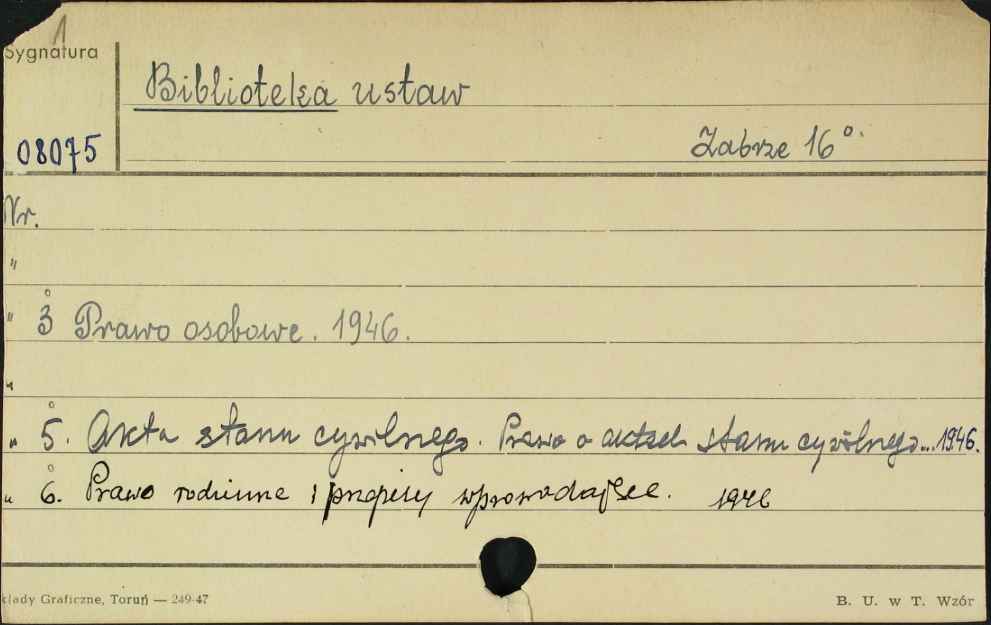 1
Sygnatura
Biblioteka ustaw
08075
Zabrze 16°.
Nr.
"
" 3 Prawo osobowe. 1946.
"
" 5. Akta stanu cywilnego. Prawo o aktach stanu cywilnego...1946.
" 6. Prawo rodzinne i przepisy wprowadzające. 1946
kłady Graficzne, Toruń — 249-47
B. U. w T. Wzór